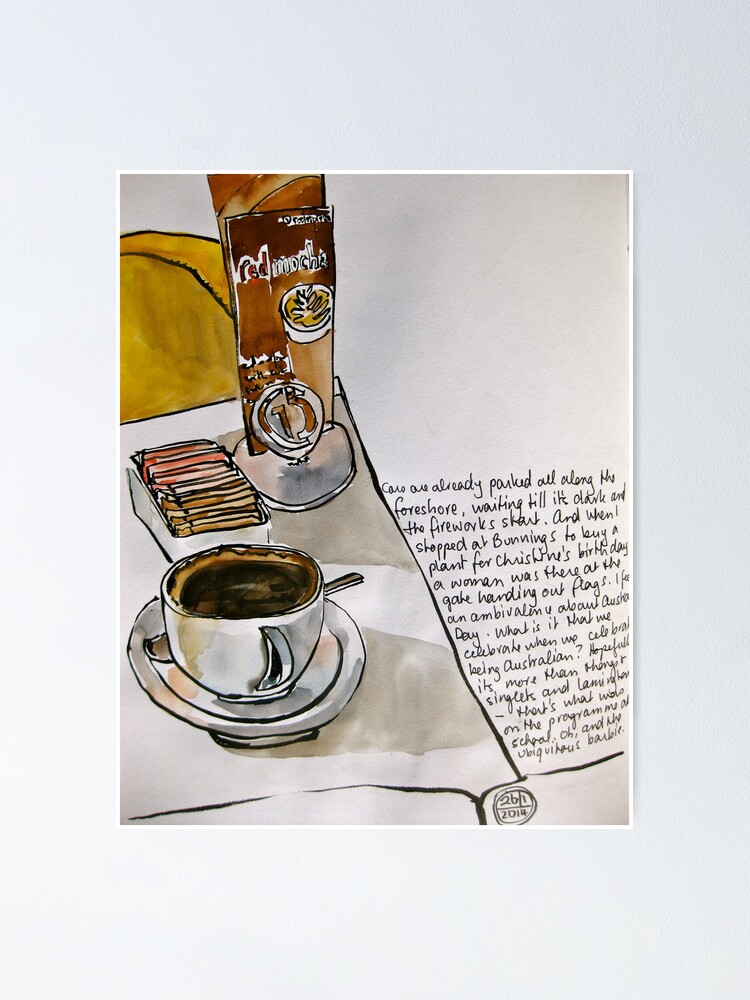 redmocha
15
Cars are already parked all along the
foreshore, waiting till it's dark and
the fireworks start. And when I
stopped at Bunnings to buy a
plant for Christine's birthday
a woman was there at the
gate handing out flags. I fee
an ambivalency about Austra
Day. What is it that we
celebrate when we celebrat
being Australian? Hopefull
its more than thongs +
singlets and lamingtons
– that's what was
on the programme at
school. Oh, and the
ubiquitous barbie.
26/1
2014